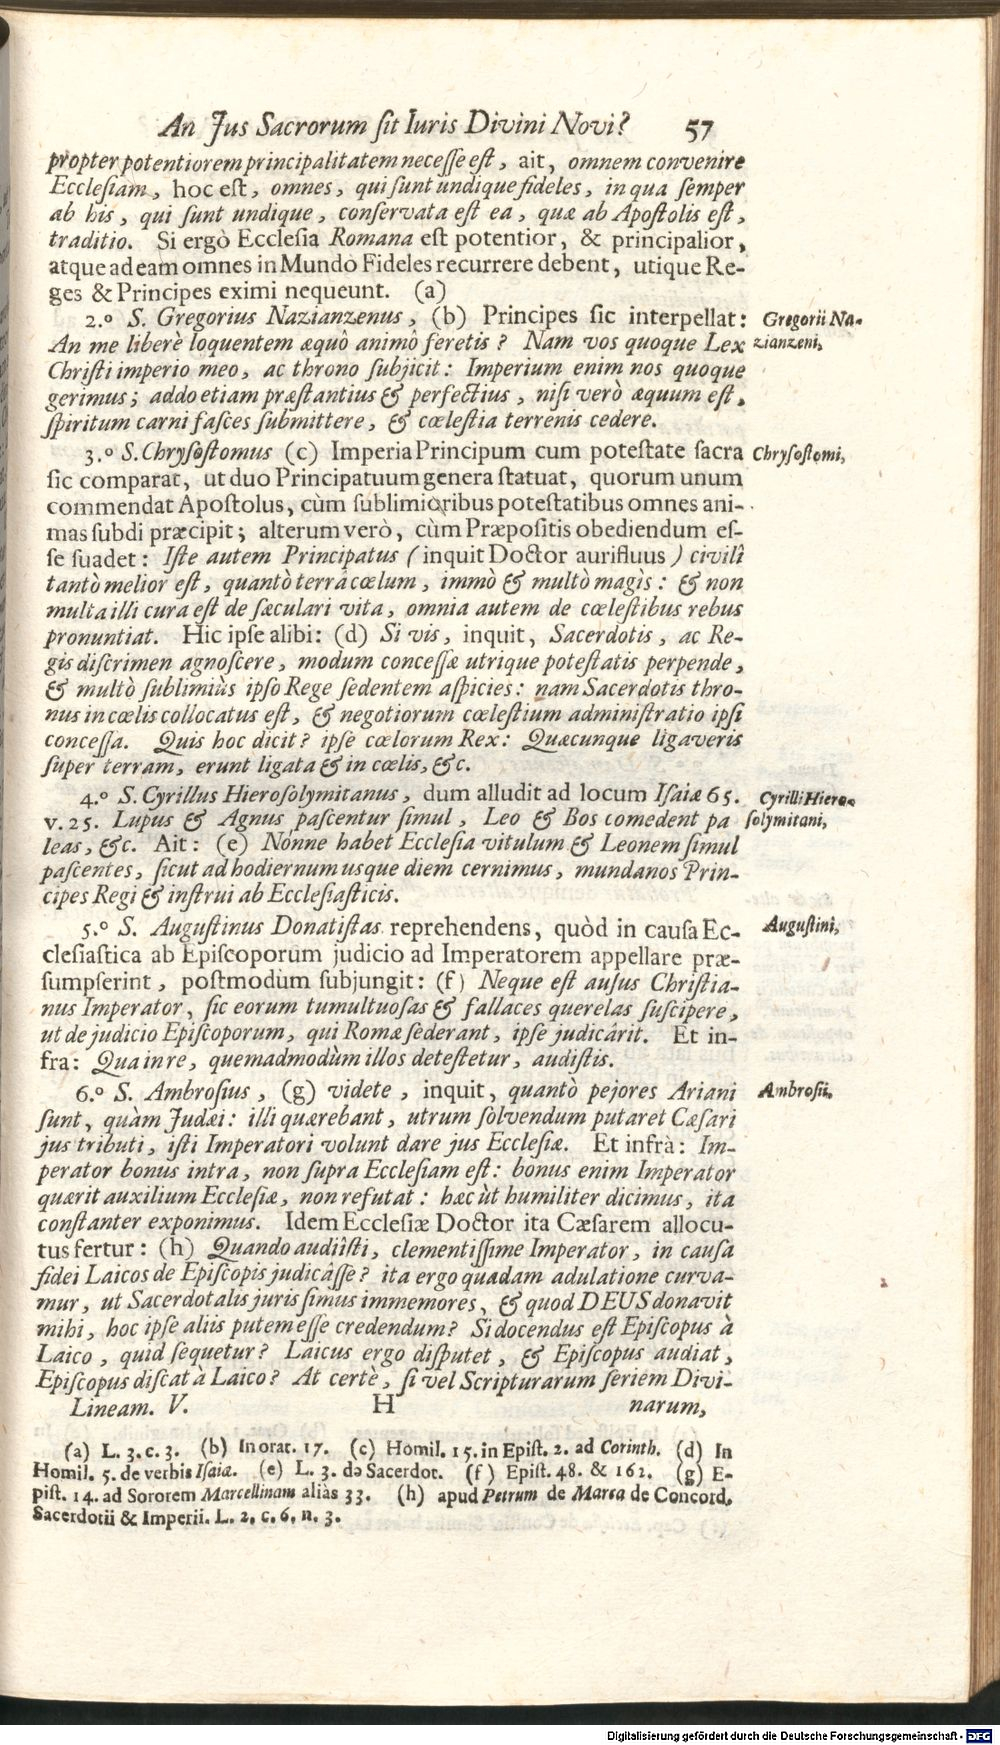 An Jus Sacrorum sit Iuris Divini Novi? 57
propter potentiorem principalitatem necesse est, ait, omnem convenire
Ecclesiam, hoc est, omnes, qui sunt undique fideles, in qua semper
ab his, qui sunt undique, conservata est ea, quæ ab Apostolis est,
traditio. Si ergò Ecclesia Romana est potentior, & principalior,
atque ad eam omnes in Mundo Fideles recurrere debent, utique Re-
ges & Principes eximi nequeunt. (a)
2.º S. Gregorius Nazianzenus, (b) Principes sic interpellat: Gregorii Na-
An me liberè loquentem æquô animô feretis? Nam vos quoque Lex zianzeni,
Christi imperio meo, ac throno subjicit: Imperium enim nos quoque
gerimus; addo etiam præstantius & perfectius, nisi verò æquum est,
spiritum carni fasces submittere, & cœlestia terrenis cedere.
3.º S. Chrysostomus (c) Imperia Principum cum potestate sacra Chrysostomi,
sic comparat, ut duo Principatuum genera statuat, quorum unum
commendat Apostolus, cùm sublimioribus potestatibus omnes ani-
mas subdi præcipit; alterum verò, cùm Præpositis obediendum es-
se suadet: Iste autem Principatus (inquit Doctor aurifluus) civilî
tantò melior est, quantò terrâ cœlum, immò & multò magìs: & non
multa illi cura est de sæculari vita, omnia autem de cœlestibus rebus
pronuntiat. Hic ipse alibi: (d) Si vis, inquit, Sacerdotis, ac Re-
gis discrimen agnoscere, modum concessæ utrique potestatis perpende,
& multò sublimiùs ipso Rege sedentem aspicies: nam Sacerdotis thro-
nus in cœlis collocatus est, & negotiorum cœlestium administratio ipsi
concessa. Quis hoc dicit? ipse cœlorum Rex: Quæcunque ligaveris
super terram, erunt ligata & in cœlis, &c.
4.º S. Cyrillus Hierosolymitanus, dum alludit ad locum Isaiæ 65. Cyrilli Hiero-
v. 25. Lupus & Agnus pascentur simul, Leo & Bos comedent pa solymitani,
leas, &c. Ait: (e) Nónne habet Ecclesia vitulum & Leonem simul
pascentes, sicut ad hodiernum usque diem cernimus, mundanos Prin-
cipes Regi & instrui ab Ecclesiasticis.
5.º S. Augustinus Donatistas reprehendens, quòd in causa Ec- Augustini,
clesiastica ab Episcoporum judicio ad Imperatorem appellare præ-
sumpserint, postmodùm subjungit: (f) Neque est ausus Christia-
nus Imperator, sic eorum tumultuosas & fallaces querelas suscipere,
ut de judicio Episcoporum, qui Romæ sederant, ipse judicârit. Et in-
fra: Qua in re, quemadmodùm illos detestetur, audistis.
6.º S. Ambrosius, (g) videte, inquit, quantò pejores Ariani Ambrosii.
sunt, quàm Judæi: illi quærebant, utrum solvendum putaret Cæsari
jus tributi, isti Imperatori volunt dare jus Ecclesiæ. Et infrà: Im-
perator bonus intra, non supra Ecclesiam est: bonus enim Imperator
quærit auxilium Ecclesiæ, non refutat: hæc ùt humiliter dicimus, ita
constanter exponimus. Idem Ecclesiæ Doctor ita Cæsarem allocu-
tus fertur: (h) Quando audiisti, clementissime Imperator, in causa
fidei Laicos de Episcopis judicâsse? ita ergo quadam adulatione curva-
mur, ut Sacerdotalis juris simus immemores, & quod DEUS donavit
mihi, hoc ipse aliis putem esse credendum? Si docendus est Episcopus à
Laico, quid sequetur? Laicus ergo disputet, & Episcopus audiat,
Episcopus discat à Laico? At certè, si vel Scripturarum seriem Divi-
Lineam. V. H narum,
(a) L. 3. c. 3. (b) In orat. 17. (c) Homil. 15. in Epist. 2. ad Corinth. (d) In
Homil. 5. de verbis Isaiæ. (e) L. 3. de Sacerdot. (f) Epist. 48. & 162. (g) E-
pist. 14. ad Sororem Marcellinam aliàs 33. (h) apud Petrum de Marca de Concord.
Sacerdotii & Imperii. L. 2. c. 6. n. 3.
Digitalisierung gefördert durch die Deutsche Forschungsgemeinschaft - DFG